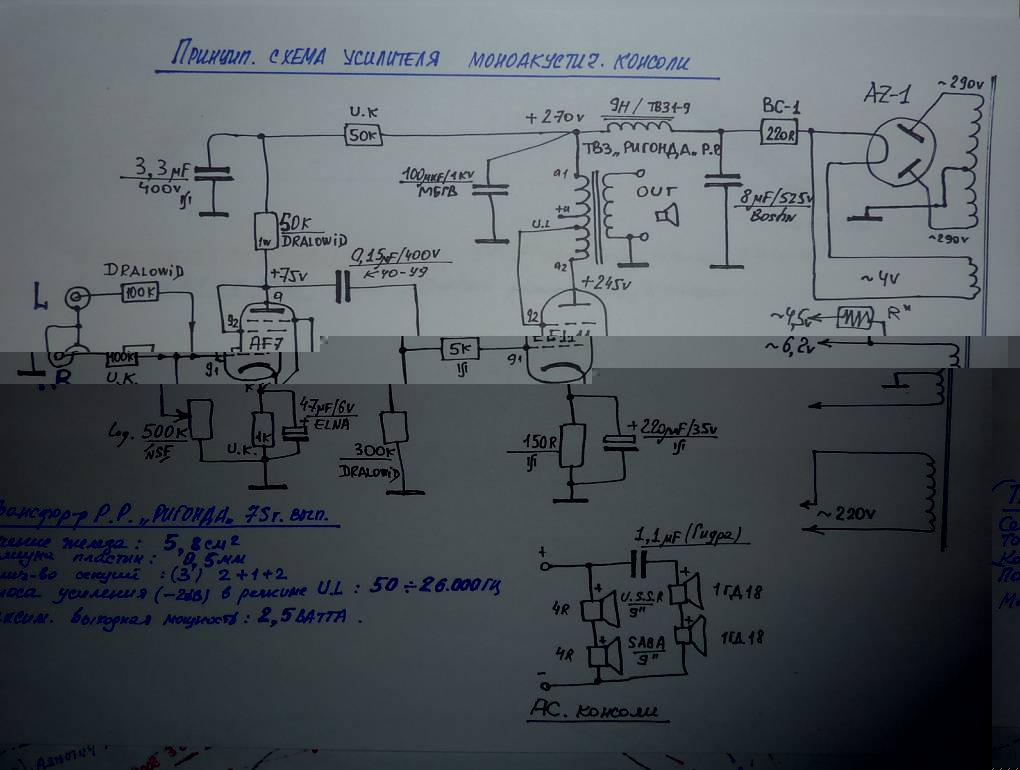 Принцип. схема усилителя моноакустич. консоли
~290v
AZ-1
9H / ТВЗ1-9
ВС-1
U.K
+270v
50K
220R
ТВЗ „Ригонда„ Р.Р.
3,3µF
400v
100мкF/1KV
МБГВ
a1
OUT
8µF/525v
50K
1w
DRALOWID
U.L
~290v
0,15µF/400V
K40-У9
+75v
a2
+245v
~4v
DRALOWID
L
100K
g2
a
g2
~4,5v
R*
AF7
~6,2v
5K
R
100K
g1
g1
U.K.
47µF/6v
ELNA
Log. 500K
NSF
1K
U.K.
300K
DRALOWID
150R
+220µF/35v
~220v
Р.Р. „Ригонда„ 75г. вып.
железа: 5,8см²
пластин: 0,5мм
секций: (3) 2+1+2
усиления (-2dB) в режиме U.L : 50÷26.000Гц
выходная мощность: 2,5ватта.
1,1µF (Гидра)
+
4R
U.S.S.R
9"
1ГД18
4R
SABA
9"
1ГД18
-
АС. консоли